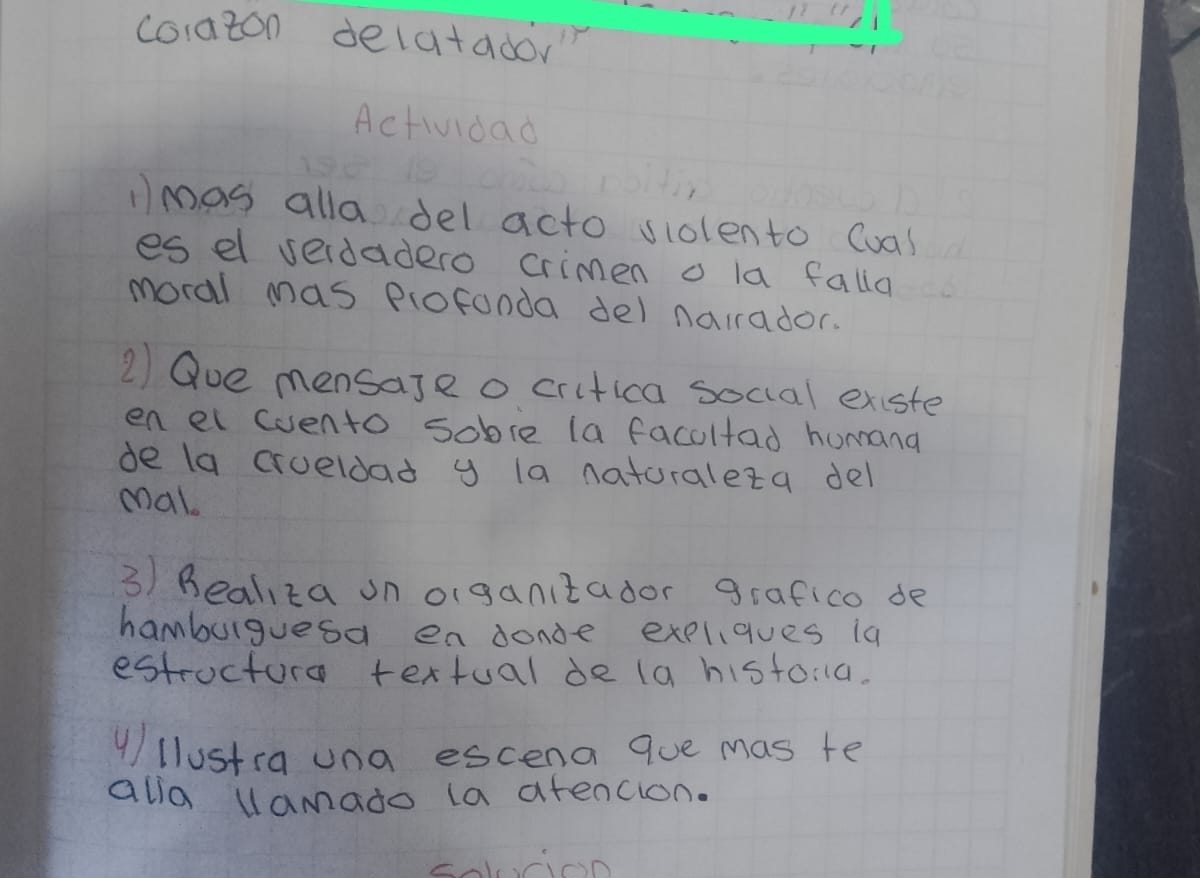 corazón delatador"
Actividad
1) mas alla del acto violento cual
es el verdadero crimen o la falla
moral mas profunda del narrador.
2) Que mensaje o critica social existe
en el cuento sobre la facultad humana
de la crueldad y la naturaleza del
mal.
3) Realiza un organizador grafico de
hamburguesa en donde expliques la
estructura textual de la historia.
4) Ilustra una escena que mas te
alla llamado la atencion.
Solucion